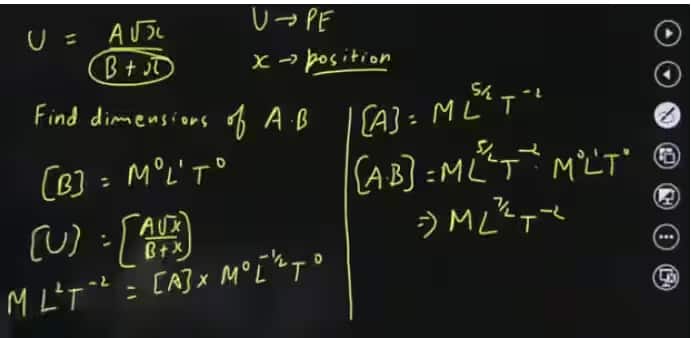 U = A√x / (B + x)
U → PE
x → position
Find dimensions of A·B
[B] = M⁰L¹T⁰
[U] = [A√x / B+x]
ML²T⁻² = [A] × M⁰L⁻¹ᐟ²T⁰
[A] = ML⁵ᐟ²T⁻²
[A·B] = ML⁵ᐟ²T⁻² · M⁰L¹T⁰
⇒ ML⁷ᐟ²T⁻²